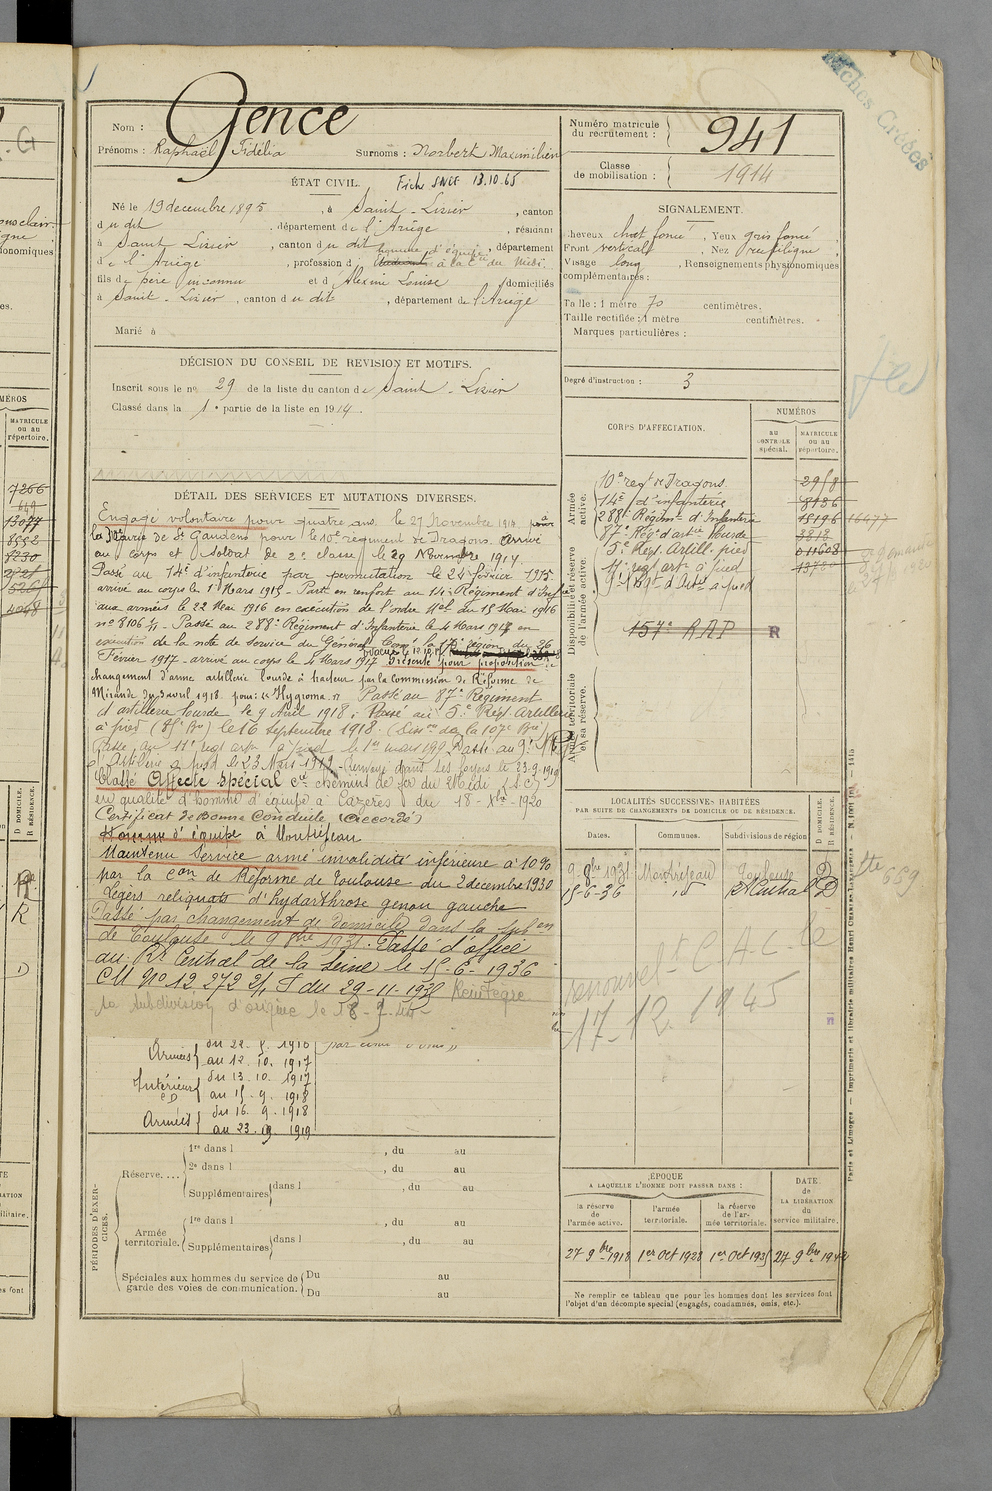 Fiches Créées
Nom : Gence
Prénoms : Raphaël Fidélia Surnoms : Norbert Maximilien
ÉTAT CIVIL. Fiche SNCF 13.10.65
Né le 19 decembre 1895, à Saint-Lizier, canton
du dit, département de l'Ariège, résidant
à Saint Lizier, canton du dit, département
de l'Ariège, profession d homme d'équipe à la Cie du Midi.
fils de père inconnu et d Alexine Louise domiciliés
à Saint-Lizier, canton du dit, département de l'Ariège
Marié à
DÉCISION DU CONSEIL DE REVISION ET MOTIFS.
Inscrit sous le no 29 de la liste du canton de Saint-Lizier
Classé dans la 1e partie de la liste en 1914.
DÉTAIL DES SERVICES ET MUTATIONS DIVERSES.
Engagé volontaire pour quatre ans. le 27 Novembre 1914 à
la Mairie de St Gaudens pour le 10e régiment de Dragons. Arrivé
au corps et soldat de 2e classe le 29 Novembre 1914.
Passé au 14e d'infanterie par permutation le 24 février 1915.
arrivé au corps le 1er Mars 1915 - Parti en renfort au 14e Régiment d'Inf
aux armées le 22 Mai 1916 en exécution de l'ordre Mel du 15 Mai 1916
no 8106/1 - Passé au 288e Régiment d'Infanterie le 4 Mars 1917 en
exécution de la note de service du Général Comt la 17e région du 26
Février 1917 - arrivé au corps le 4 Mars 1917 Présenté pour proposition
changement d'arme artillerie lourde à tracteur par la Commission de Réforme de
Mirande du 3 avril 1918 pour: "Hygroma." Passé au 87e Régiment
d'artillerie lourde le 9 Avril 1918; Passé au 5e Régt Artillerie
à pied (85e Bie) le 16 Septembre 1918.
Passé au 11e regt artie à pied le 1er mars 1919 Passé au 9e Regt
d'Artillerie à pied le 23 Mars 1919 - Renvoyé dans ses foyers le 23-9-1919
Classé Affecté spécial Cie chemins de fer du Midi (S.C)
en qualité d'homme d'équipe à Cazères du 18-Xbre-1920
Certificat de Bonne Conduite (Accordé)
Homme d'équipe à Montréjeau
Maintenu Service armé invalidité inférieure à 10%
par la Con de Réforme de Toulouse du 2 decembre 1930
Légers reliquats d'hydarthrose genou gauche
Passé par changement de domicile dans la subon
de Toulouse le 9 8bre 1931. Passé d'office
au Rt Central de la Seine le 15-6-1936
CM No 12 272 2/1 S du 29-11-1930 Réintègre
la subdivision d'origine le
Armées du 22. 5. 1916
au 12. 10. 1917
Intérieur du 13. 10. 1917
CD au 15. 9. 1918
Armées du 16. 9. 1918
au 23. 9. 1919
PÉRIODES D'EXERCICES.
Réserve....
1re dans l , du au
2e dans l , du au
Supplémentaires dans l , du au
Armée territoriale.
1re dans l , du au
Supplémentaires dans l , du au
Spéciales aux hommes du service de garde des voies de communication.
Du au
Du au
Numéro matricule du recrutement : 941
Classe de mobilisation : 1914
SIGNALEMENT.
Cheveux chat foncé, Yeux gris foncé,
Front vertical, Nez rectiligne,
Visage long, Renseignements physionomiques
complémentaires :
Taille : 1 mètre 70 centimètres.
Taille rectifiée : 1 mètre centimètres.
Marques particulières :
Degré d'instruction : 3
CORPS D'AFFECTATION.
NUMÉROS
au CONTROLE spécial.
MATRICULE ou au répertoire.
Armée active.
Disponibilité et réserve de l'armée active.
Armée territoriale et sa réserve.
10e regt de Dragons 2958
14e d'infanterie 8936
288e Régimt d'Infanterie 15196 16477
87e Régt d'artie lourde 3818
5e Régt Artill. à pied 011608
11e regt artie à pied
9e Regt d'Artie à pied
157e RAP R
LOCALITÉS SUCCESSIVES HABITÉES
PAR SUITE DE CHANGEMENTS DE DOMICILE OU DE RÉSIDENCE.
Dates. Communes. Subdivisions de région
D DOMICILE.
R RÉSIDENCE.
9-8bre 1931 Montréjeau Toulouse D
15-6-36 id Rt Central D
659
renouvelt C.A.C. le
17-12-1945
ÉPOQUE
A LAQUELLE L'HOMME DOIT PASSER DANS :
la réserve de l'armée active.
l'armée territoriale.
la réserve de l'armée territoriale.
DATE DE LA LIBÉRATION du service militaire.
27 9bre 1918
1er Oct 1928
1er Oct 193
27 9bre 1942
Ne remplir ce tableau que pour les hommes dont les services font
l'objet d'un décompte spécial (engagés, condamnés, omis, etc.).
Paris et Limoges. — Imprimerie et librairie militaires Henri CHARLES-LAVAUZELLE.